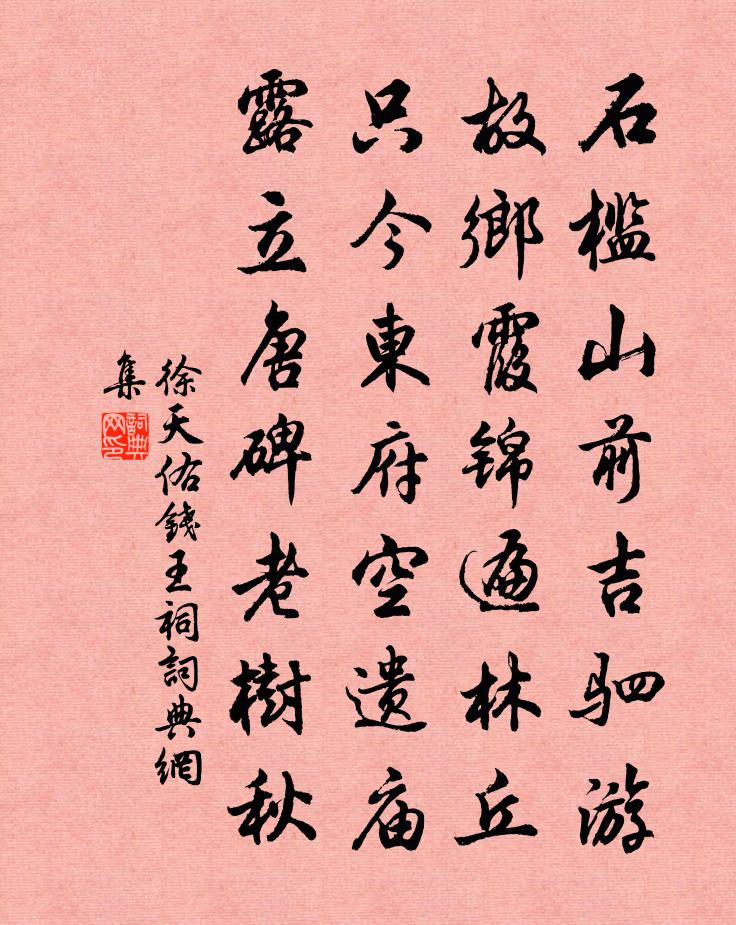 石檻山前吉驷游
故鄉霞錦遍林丘
只今東府空遗庙
露立唐碑老樹秋
徐天佑錢王祠詞典網
集
詞典网印